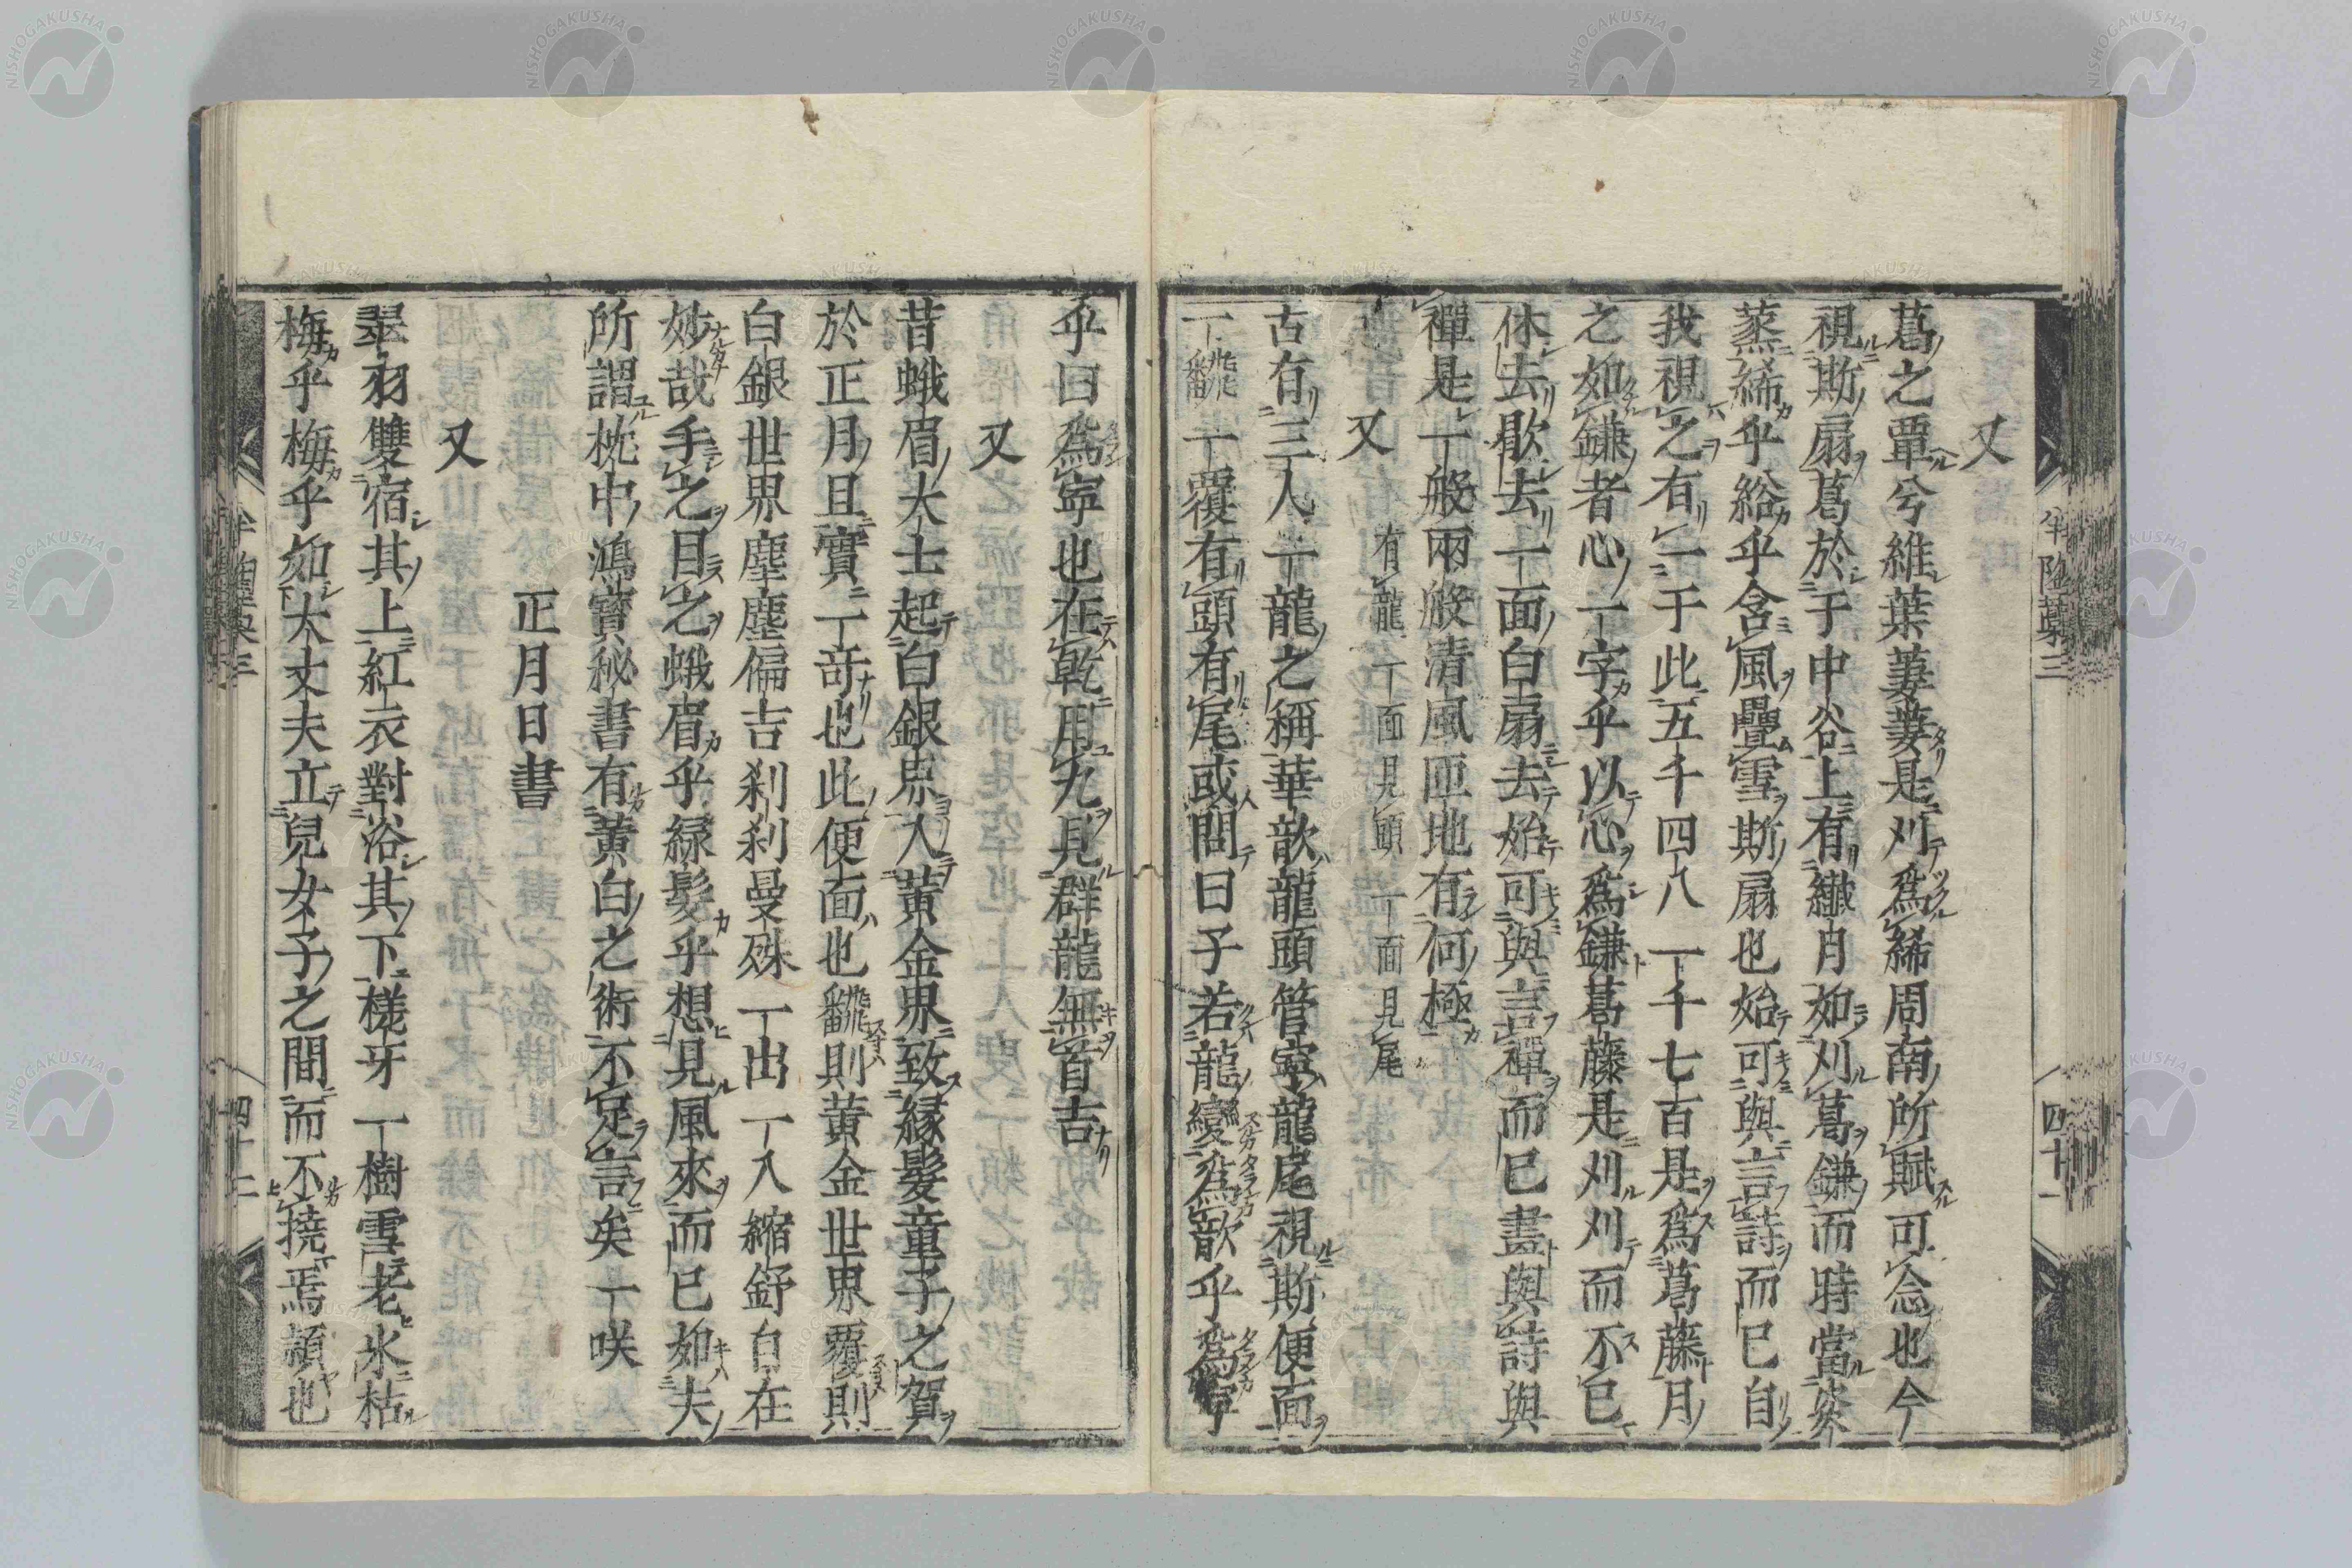 又
葛之覃兮維葉萋萋是刈爲絺周南所賦可念也今
視斯扇葛於于中谷上有纖月如刈葛鎌而時當姿
蒸絺乎綌乎含風疊雪斯扇也始可與言詩而已自
我視之有一于此五千四八一千七百是爲葛藤月
之如鎌者心一字乎以心爲鎌葛藤是刈刈而不已
休去歇去一面白扇去始可與言禪而已盡與詩與
禪是一般兩般清風匝地有何極
又 有龍一面見頭一面見尾
古有三人一龍之稱華歆龍頭管寧龍尾視斯便面
一飜一覆有頭有尾或問曰子若龍變爲歆乎爲寧
半陶藁三 四十一
乎曰爲寧也在乾用九見群龍無首吉
又
昔蛾眉大士起白銀界入黃金界致緑髮童子之賀
於正月旦實一奇也此便面也飜則黃金世界覆則
白銀世界塵塵偏吉刹刹曼殊一出一入縮舒自在
妙哉手之目之蛾眉乎緑髮乎想見風來而已如夫
所謂枕中鴻寶秘書有黃白之術不足言矣一咲
正月日書
又
翠羽雙宿其上紅衣對浴其下槎牙一樹雪老氷枯
梅乎梅乎如大丈夫立兒女子之間而不撓焉頴也
半陶藁三 四十二
NISHOGAKUSHA